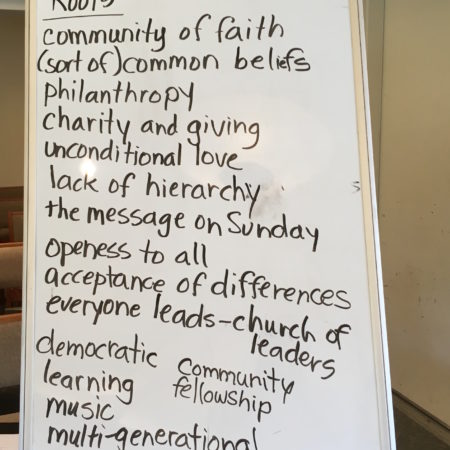 Roots
community of faith
(sort of) common beliefs
philanthropy
charity and giving
unconditional love
lack of hierarchy
the message on Sunday
openess to all
acceptance of differences
everyone leads-church of
leaders
democratic
learning
music
multi-generational
community
fellowship